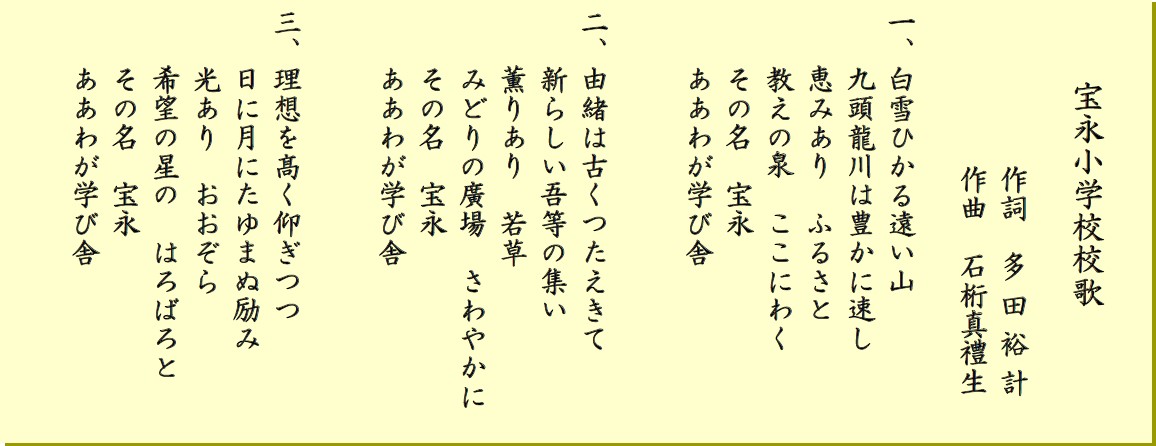 宝永小学校校歌
作詞　多田裕計
作曲　石桁真禮生
一、白雪ひかる遠い山
九頭龍川は豊かに速し
恵みあり　ふるさと
教えの泉　ここにわく
その名　宝永
ああわが学び舎
二、由緒は古くつたえきて
新らしい吾等の集い
薫りあり　若草
みどりの廣場　さわやかに
その名　宝永
ああわが学び舎
三、理想を髙く仰ぎつつ
日に月にたゆまぬ励み
光あり　おおぞら
希望の星の　はろばろと
その名　宝永
ああわが学び舎